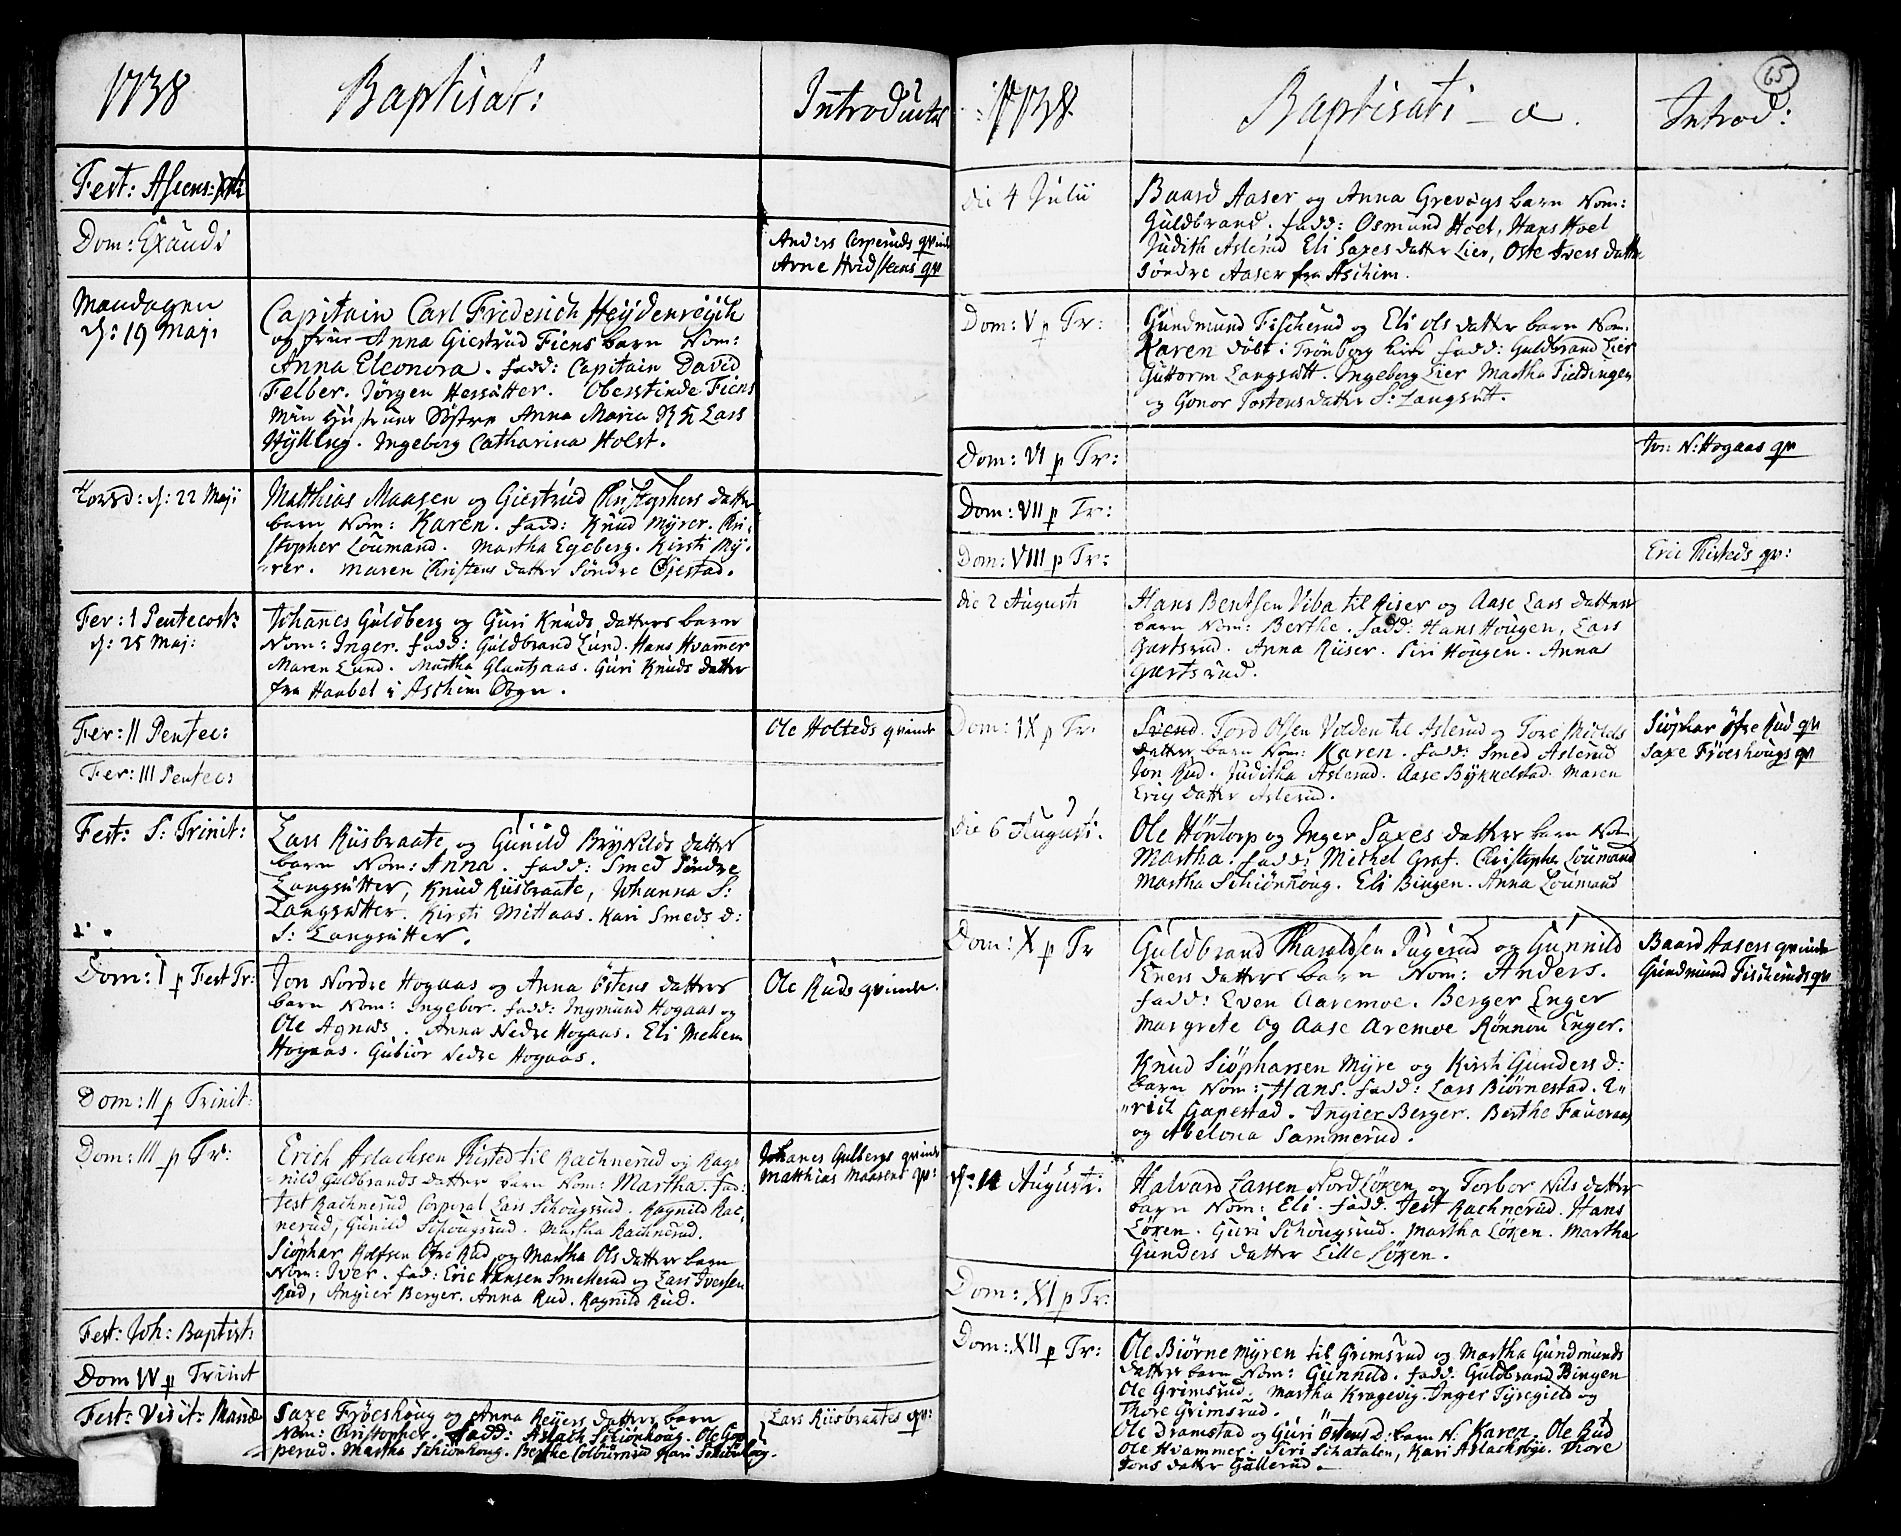 1738
Baptisat:
Introductæ
Fest: Ascens:
Dom: Exaudi
Anders Corperuds qvinde
Arne Hvidstens qv
Mandagen
d: 19 Maji
Capitain Carl Friderich Heÿdenreÿch
og frue Anna Giertrud Fiens barn Nom:
Anna Eleonora. fadd: Capitain David
Felber. Jørgen Hessætter. Oberstinde Fiens
min Hustrues Søster Anna Maria Lars
Hÿlling. Ingeborg Catharina Holst.
Torsd: d: 22 Maji
Matthias Maasen og Giertrud Christophers datter
barn Nom: Karen. fadd: Knud Mÿrer. Chri-
stopher Loumand. Martha Egeberg. Kirsti Mÿ-
rer. Maren Christens datter Søndre Øjestad.
Fer: 1 Pentecost:
d: 25 Maj:
Johannes Guldberg og Guri Knuds datters barn
Nom: Inger. fadd: Guldbrand Lund. Hans Hvammer
Maren Lund. Martha Glentzaas. Guri Knuds datter
fra Haabet i Aschim Sogn.
Fer: II Pentec:
Ole Holteds qvinde
Fer: III Pentec:
Fest: S: Trinit:
Lars Riisbraate og Gunild Brÿnilds datter
barn Nom: Anna. fadd: Smed Søndre
Langsætter, Knud Riisbraate, Johanna S:
Langsætter. Kirsti Mittaas. Kari Smeds d:
S: Langsætter.
Dom: I p Fest Tr:
Jon Nordre Hogaas og Anna Østens datters
barn Nom: Ingebor. fadd: Ingmund Hogaas og
Ole Agnæs. Anna Nedre Hogaas. Eli Mellem
Hogaas. Gubiør Nedre Hogaas.
Ole Ruds qvinde.
Dom: II p Trinit:
Dom: III p Tr:
Erich Aslachsen Risted til Rachnerud og Rag-
nild Guldbrands datter barn Nom: Martha. fad:
Test Rachnerud Corperal Lars Schougsrud. Ragnild Rac-
nerud, Gunild Schougsrud. Martha Rachnerud.
Johanes Gulbergs qvinde
Matthias Maasens qv:
Siøphar Rolfsen Øfre Rud og Martha Ols datter barn
Nom: Iver. fad: Eric Hansen Smellerud og Lars Iversen
Rud, Angier Berger. Anna Rud. Ragnild Rud.
Fest: Joh: Baptist:
Dom IV p Trinit
Fest: Visit: Mariæ
Saxe Frøeshoug og Anna Reÿers datter barn
Nom: Christopher. fadd: Aslach Schiønhoug. Ole Gop-
perud. Martha Schiønhoug. Berthe Colburnsrud Kari
Lars Riisbraates qv:
1738.
Baptisati - æ.
Introd:
65
die 4 Julii
Baard Aaser og Anna Grevøgs barn Nom:
Guldbrand. fadd: Osmund Hoel, Hans Hoel
Judith Aslerud Eli Saxes datter Lier, Oste Ivers datter
Søndre Aaser fra Aschim.
Dom: V p Tr:
Gundmund Fischerud og Eli Ols datter barn Nom.
Karen døbt i Trønborg kirke fadd: Guldbrand Lier
Guttorm Langsætt. Ingeborg Lier Martha Fieldingen
og Gonor Tostens datter S: Langsætt.
Dom: VI p Tr:
Jon N: Hogaas qv
Dom: VII p Tr:
Dom: VIII p Tr:
Eric Risteds qv:
die 2 Augusti
Hans Bentsen Viba til Riser og Aase Lars datters
barn Nom: Berthe. fadd: Hans Hougen, Lars
Gartsrud. Anna Riiser. Siri Hougen. Anna
Gartsrud.
Dom: IX p Tr:
Svend Tord Olsen Volden til Aslerud og Tore Michels
datter barn Nom: Karen. fadd: Smed Aslerud
Jon Rud. Juditha Aslerud. Aase Bÿkkelstad. Maren
Erics datter Aslerud.
Siøphar Øfre Rud qv
Saxe Frøeshougs qv
die 6 Augusti.
Ole Høntorp og Inger Saxes datter barn Nom
Martha. fadd: Michel Graf. Christopher Loumand
Martha Schiønhoug. Eli Bingen. Anna Loumand
Dom: X p Tr
Guldbrand Haraldsen Sugerud og Gunnild
Eners datters barn Nom: Anders.
fadd: Even Aaremoe. Berger Enger
Margrete og Aase Aremoe Rønnou Enger.
Baard Aasers qvinde
Gundmund Fischeruds qv
Knud Siøpharsen Mÿre og Kirsti Gunders d:
barn Nom: Hans. fadd: Lars Biørnestad. E-
rich Gapestad. Ingier Berger. Berthe Faueraas
og Abelona Sammerud.
d: 14 Augusti.
Halvard Larsen Nord Løken og Torbor Nils datter
barn Nom: Eli. fadd: Test Rachnerud. Hans
Løken. Guri Schougsrud. Martha Løken. Martha
Gunders datter Lille Løken.
Dom: XI p Tr:
Dom: XII p Tr:
Ole Biørne Mÿren til Grimsrud og Martha Gundmunds
datter barn Nom: Gunnild. fadd: Guldbrand Bingen
Ole Grimsrud. Martha Kragevig. Inger Tÿregield og
Thore Grimsrud.
Ole Dramstad og Guri Østens d. barn N: Karen. Ole Rud
Ole Hvammer. Siri Schatalen, Kari Aslacksbÿe. Thore
Jons datter Gullerud.